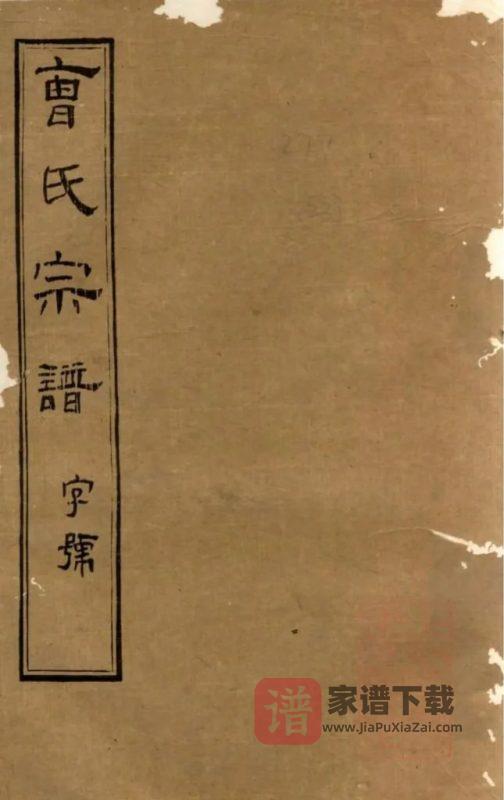 曹氏宗譜 字號
谱
家谱下载
www.JiaPuXiaZai.com